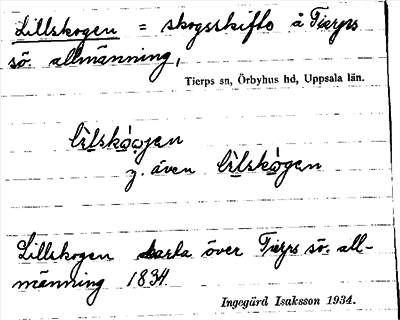 Lillskogen = skogsskifte å Tierps
sö. allmänning,
Tierps sn, Örbyhus hd, Uppsala län.
även
Lillskogen karta över Tierps sö. all-
männing 1834.
Ingegärd Isaksson 1934.